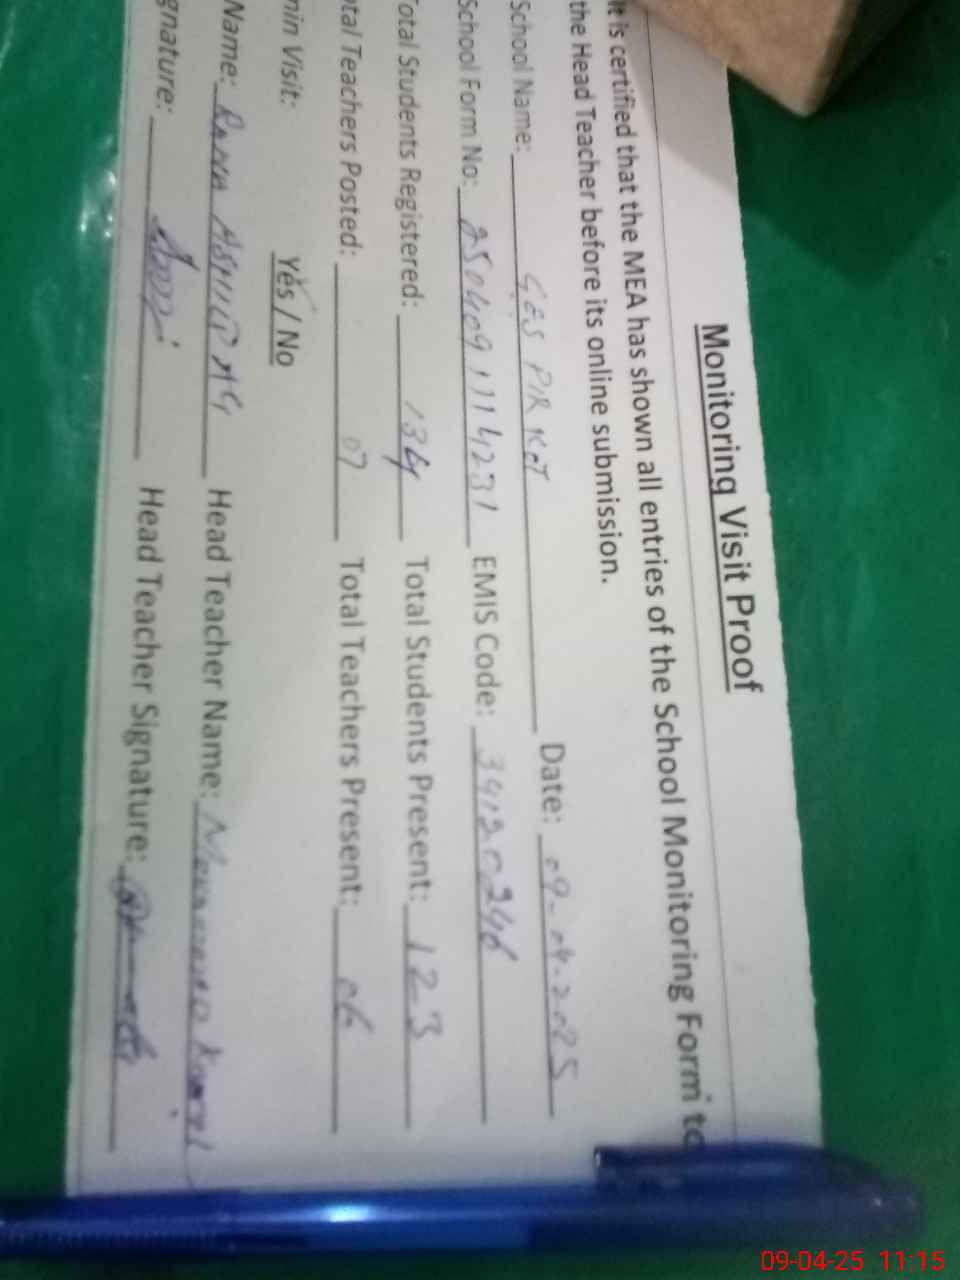 Monitoring Visit Proof
It is certified that the MEA has shown all entries of the School Monitoring Form to
the Head Teacher before its online submission.
School Name: GES PIR KOT Date: 09-04-2025
School Form No: 2504091114231 EMIS Code: 34120246
Total Students Registered: 134 Total Students Present: 123
otal Teachers Posted: 07 Total Teachers Present: 06
min Visit: Yes / No
Name: Head Teacher Name: Muhammad
gnature: Head Teacher Signature:
09-04-25 11:15